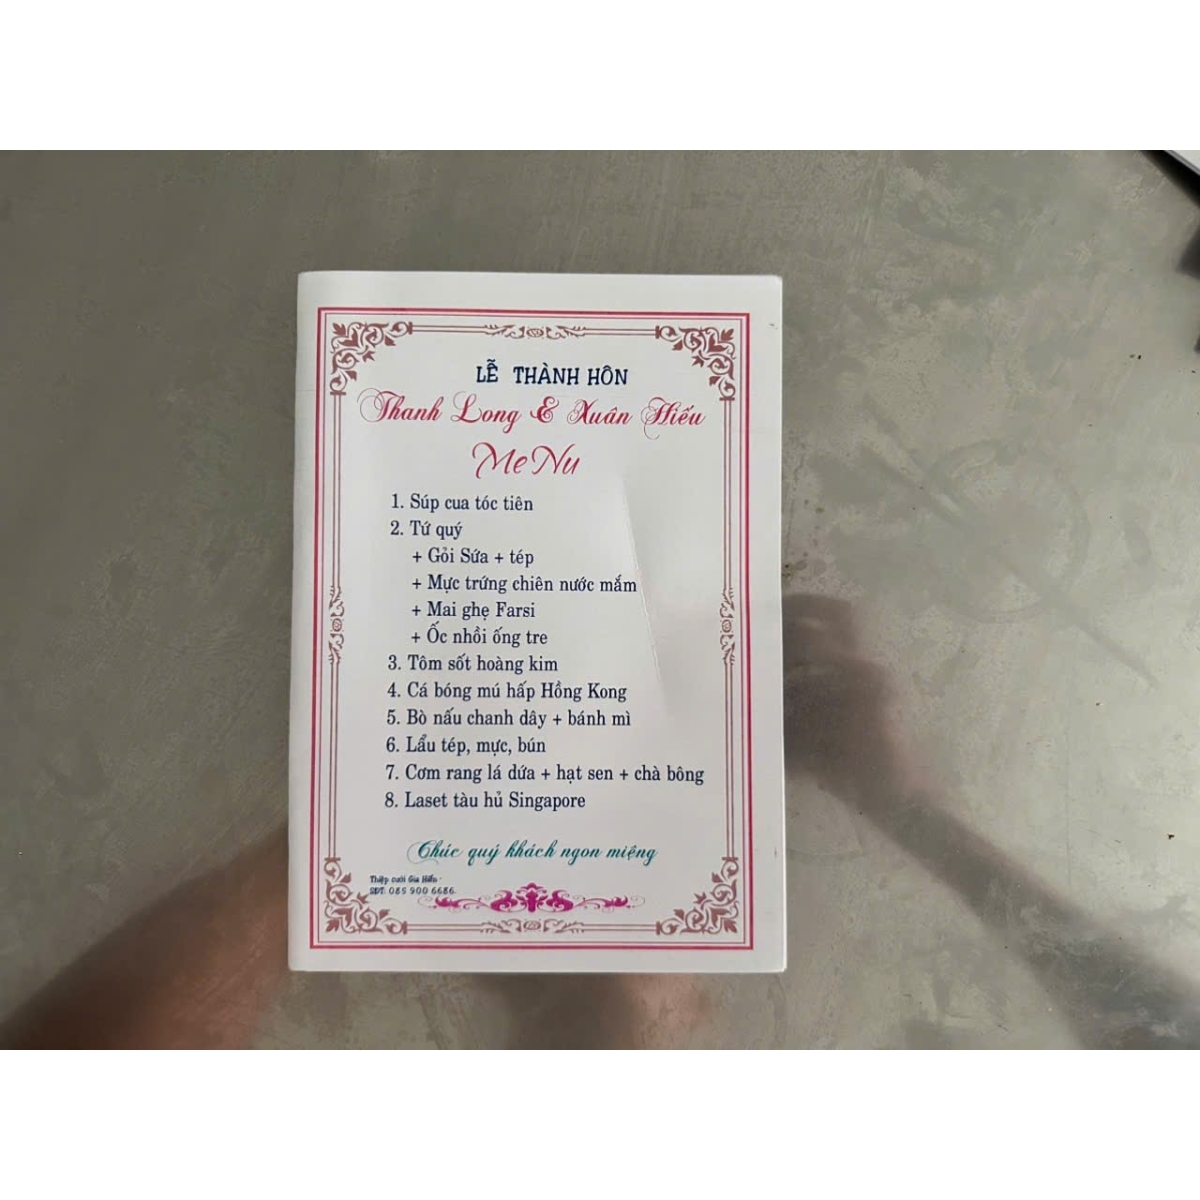 LỄ THÀNH HÔN
Thanh Long & Xuân Hiếu
MeNu
1. Súp cua tóc tiên
2. Tứ quý
+ Gỏi Sứa + tép
+ Mực trứng chiên nước mắm
+ Mai ghẹ Farsi
+ Ốc nhồi ống tre
3. Tôm sốt hoàng kim
4. Cá bóng mú hấp Hồng Kong
5. Bò nấu chanh dây + bánh mì
6. Lẩu tép, mực, bún
7. Cơm rang lá dứa + hạt sen + chà bông
8. Laset tàu hủ Singapore
Chúc quý khách ngon miệng
Thiệp cưới Gia Hiển -
SĐT: 085 900 6686